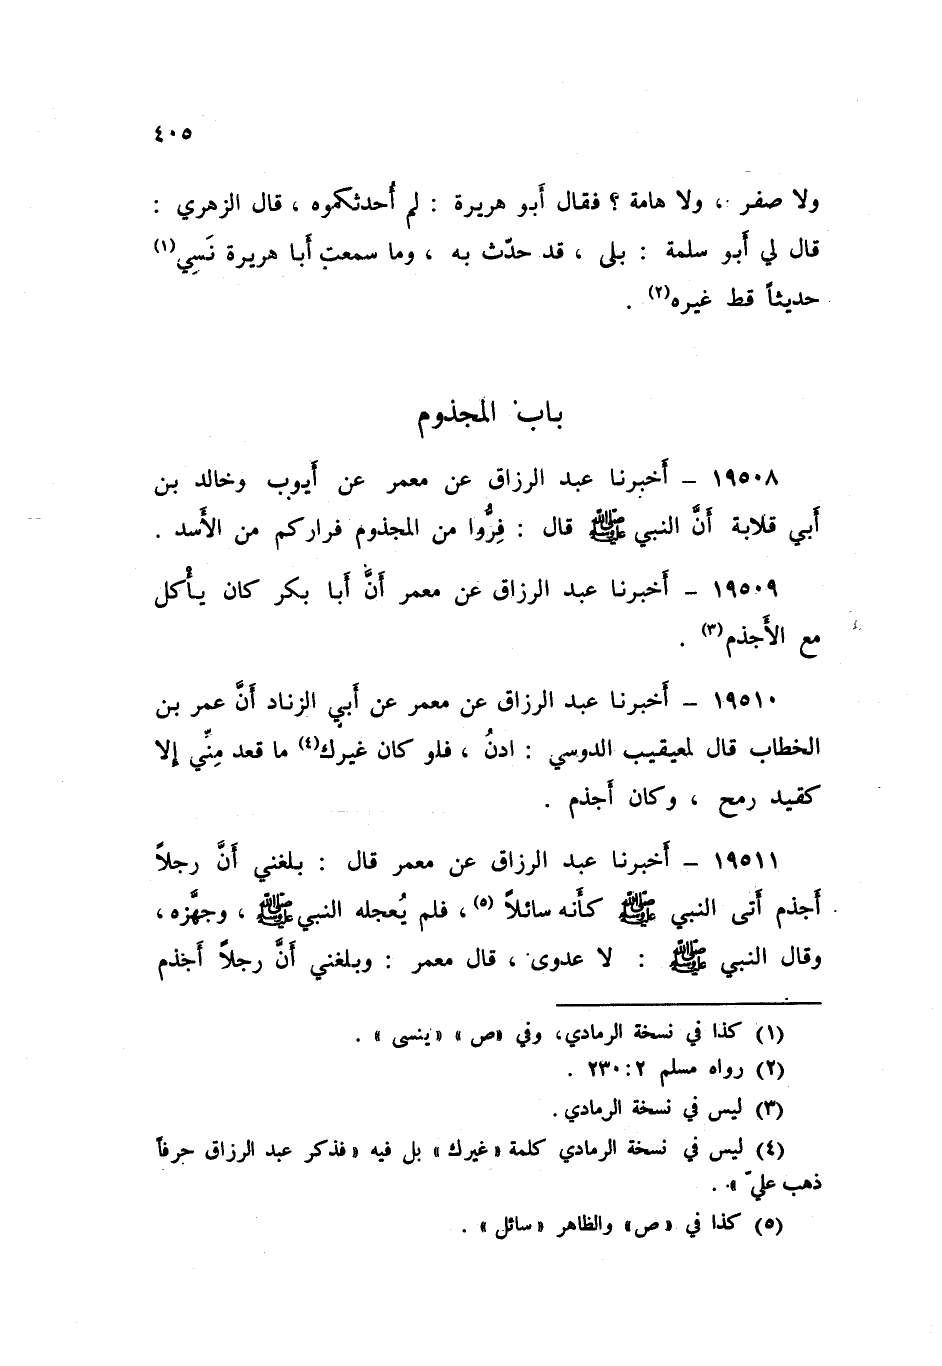 ٤٠٥
ولا صفر ، ولا هامة ؟ فقال أَبو هريرة : لم أُحدثكموه ، قال الزهري :
قال لي أَبو سلمة : بلى ، قد حدّث به ، وما سمعت أَبا هريرة نَسِي(١)
حديثاً قط غيره(٢) .
باب المجذوم
١٩٥٠٨ – أَخبرنا عبد الرزاق عن معمر عن أَيوب وخالد بن
أَبي قلابة أَنَّ النبي ﷺ قال : فِرُّوا من المجذوم فراركم من الأَسد .
١٩٥٠٩ – أَخبرنا عبد الرزاق عن معمر أَنَّ أَبا بكر كان يأْكل
مع الأَجذم(٣) .
١٩٥١٠ – أَخبرنا عبد الرزاق عن معمر عن أَبي الزناد أَنَّ عمر بن
الخطاب قال لمعيقيب الدوسي : ادنُ ، فلو كان غيرك(٤) ما قعد مِنِّي إلا
كقيد رمح ، وكان أَجذم .
١٩٥١١ – أَخبرنا عبد الرزاق عن معمر قال : بلغني أَنَّ رجلاً
أَجذم أَتى النبي ﷺ كأَنه سائلاً (٥)، فلم يُعجله النبي ﷺ ، وجهَّزه ،
وقال النبي ﷺ : لا عدوى ، قال معمر : وبلغني أَنَّ رجلاً أَجذم
(١) كذا في نسخة الرمادي، وفي «ص» «ينسى» .
(٢) رواه مسلم ٢ : ٢٣٠ .
(٣) ليس في نسخة الرمادي .
(٤) ليس في نسخة الرمادي كلمة «غيرك» بل فيه «فذكر عبد الرزاق حرفاً
ذهب عليّ» .
(٥) كذا في «ص» والظاهر «سائل» .